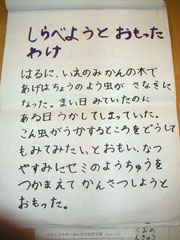 しらべようと おもった
わけ
はるに、いえのみかんの木で
あげはちょうのよう虫が さなぎに
なった。まい日 みていたのに
ある日 うかしてしまっていた。
こん虫がうかするところをどうして
もみてみたい、とおもい、なつ
やすみにセミのようちゅうを
つかまえて かんさつしようと
おもった。